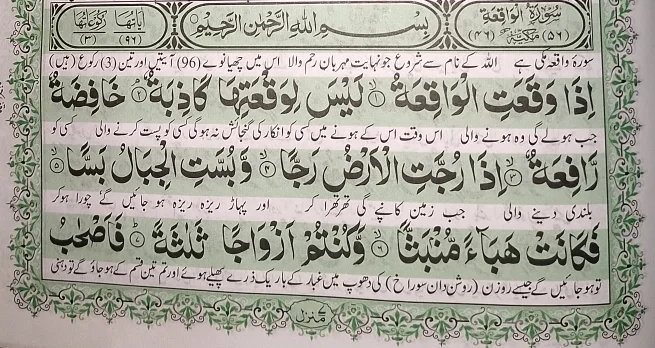 سُوْرَةُ الْوَاقِعَة
مَكِّيَّةٌ (٥٦) (٤٦)
بِسْمِ اللهِ الرَّحْمٰنِ الرَّحِيْمِ
اٰيَاتُهَا رُكُوْعَاتُهَا
(٩٦) (٣)
سورۃ واقعہ مکی ہے اللہ کے نام سے شروع جو نہایت مہربان رحم والا اس میں چھیانوے (96) آیتیں اور تین (3) رکوع (ہیں)
اِذَا وَقَعَتِ الْوَاقِعَةُ ۙ﴿۱﴾ لَيْسَ لِوَقْعَتِهَا كَاذِبَةٌ ۘ﴿۲﴾ خَافِضَةٌ
جب ہولے گی وہ ہونے والی اس وقت اس کے ہونے میں کسی کو انکار کی گنجائش نہ ہوگی کسی کو پست کرنے والی کسی کو
رَّافِعَةٌ ۙ﴿۳﴾ اِذَا رُجَّتِ الْاَرْضُ رَجًّا ۙ﴿۴﴾ وَّبُسَّتِ الْجِبَالُ بَسًّا ۙ﴿۵﴾
بلندی دینے والی جب زمین کانپے گی تھرتھرا کر اور پہاڑ ریزہ ریزہ ہو جائیں گے چورا ہوکر
فَكَانَتْ هَبَآءً مُّنْۢبَثًّا ۙ﴿۶﴾ وَّكُنْتُمْ اَزْوَاجًا ثَلٰثَةً ؕ﴿۷﴾ فَاَصْحٰبُ
تو ہو جائیں گے جیسے روزن (روشن دان سوراخ) کی دھوپ میں غبار کے باریک ذرے پھیلے ہوئے اور تم تین قسم کے ہو جاؤ گے تو دہنی
منزل ۷